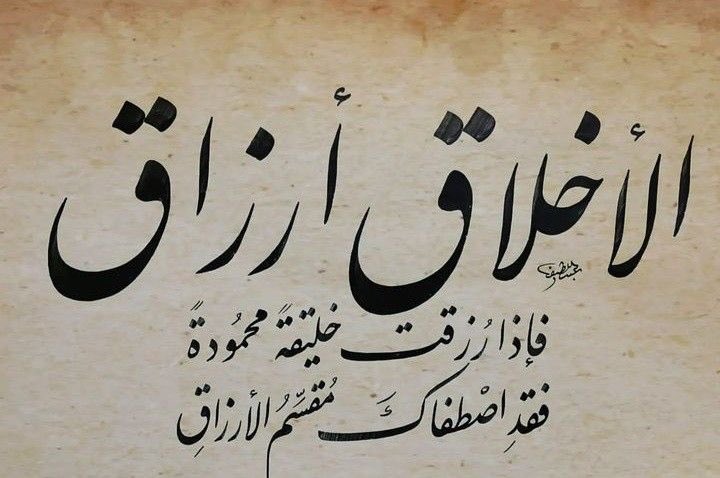 الأخلاق أرزاق
فإذا رُزقت خليقةً محمُودةً
فقدِ اصْطفاكَ مُقسِّمُ الأرزاقِ